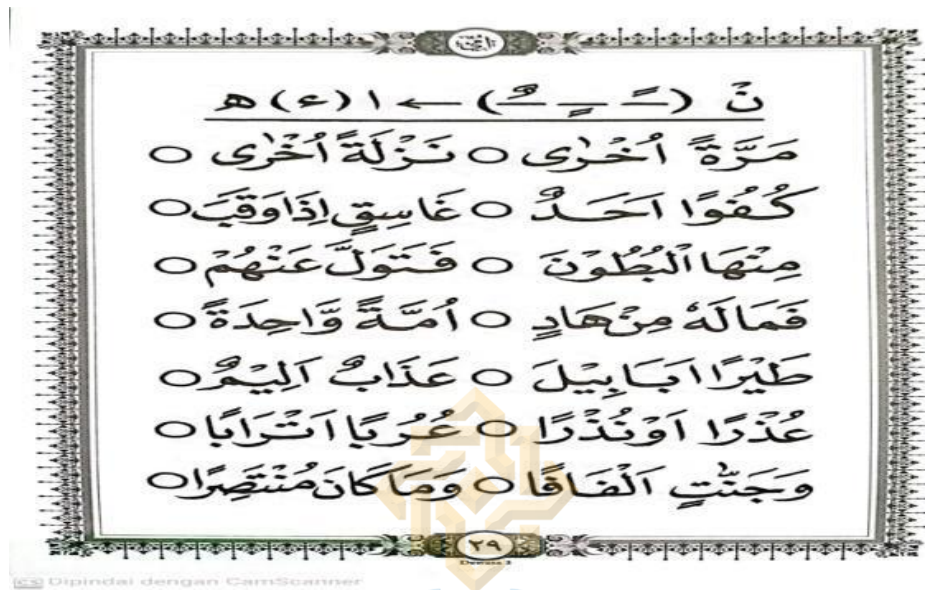 نْ (ــًـ ــٍـ ــٌـ) ← ا (ء) ه
مَرَّةً اُخْرٰى ○ نَزْلَةً اُخْرٰى ○
كُفُوًا اَحَدٌ ○ غَاسِقٍ اِذَا وَقَبَ ○
مِنْهَا الْبُطُوْنَ ○ فَتَوَلَّ عَنْهُمْ ○
فَمَا لَهٗ مِنْ هَادٍ ○ اُمَّةً وَّاحِدَةً ○
طَيْرًا اَبَابِيْلَ ○ عَذَابٌ اَلِيْمٌ ○
عُذْرًا اَوْ نُذْرًا ○ عُرُبًا اَتْرَابًا ○
وَجَنّٰتٍ اَلْفَافًا ○ وَمَا كَانَ مُنْتَصِرًا ○
٢٩
Dewasa 3
CS Dipindai dengan CamScanner